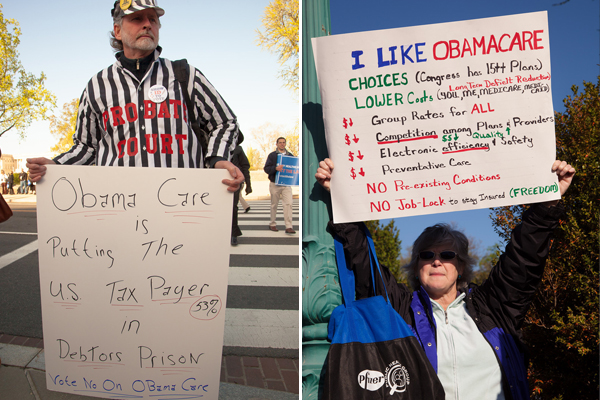 PROBATE
COURT
Obama Care
is
Putting The
U.S. Tax Payer
53%
in
Debtors Prison
Vote No On OBama Care
I LIKE OBAMACARE
CHOICES (Congress has 1544 Plans)
Long Term Deficit Reduction
LOWER Costs (YOU, ME, MEDICARE, MEDI-CAID)
$↓ Group Rates for ALL
$↓ Competition among Plans & Providers
$$↓ Quality↑
$↓ Electronic efficiency & Safety
$↓ Preventative Care
NO Pre-existing Conditions
NO Job-Lock to stay Insured (FREEDOM)
Pfizer